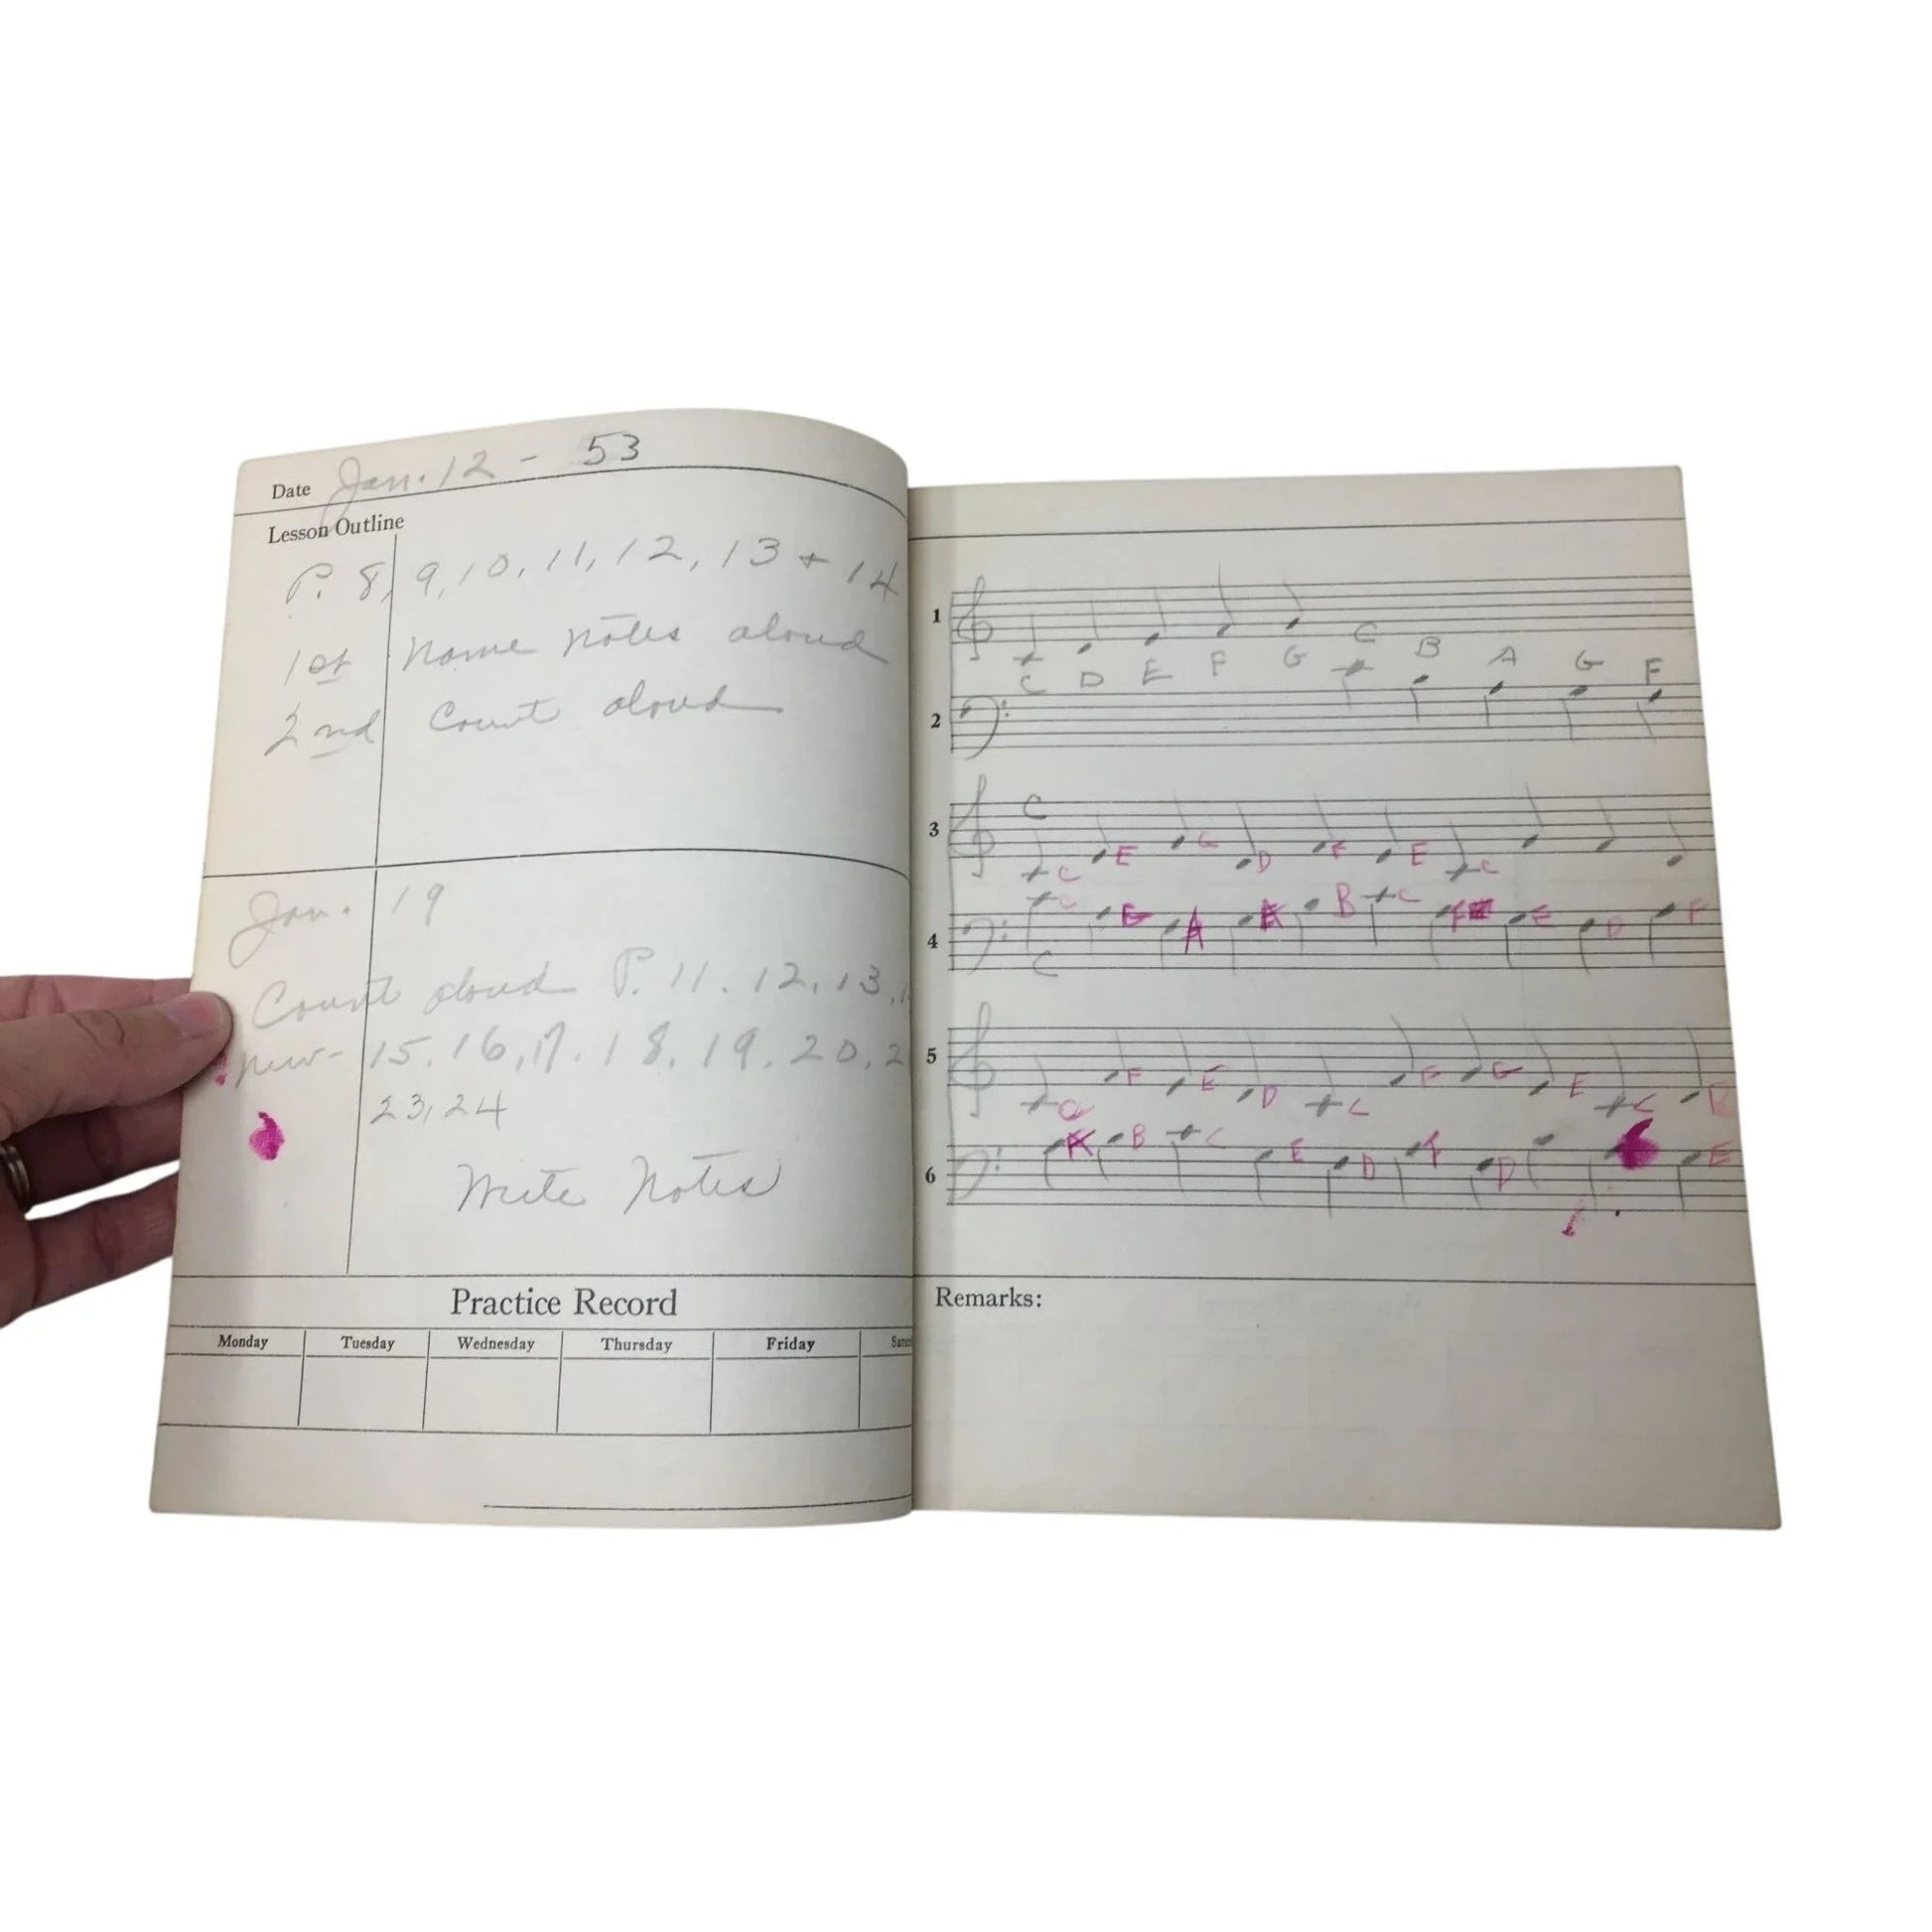 Date Jan. 12 - 53
Lesson Outline
P. 8, 9, 10, 11, 12, 13 + 14
1st Name notes aloud
2nd Count aloud
Jan. 19
Count aloud P. 11. 12. 13.
new- 15. 16, 17. 18. 19. 20.
23, 24
Write Notes
Practice Record
Monday Tuesday Wednesday Thursday Friday
1
C B A G F
C D E F G
2
C
3
C E G D F E C
C G A B C F E D F
4
C
5
F E D C F G E C D
A B C E D F D E
6
Remarks: